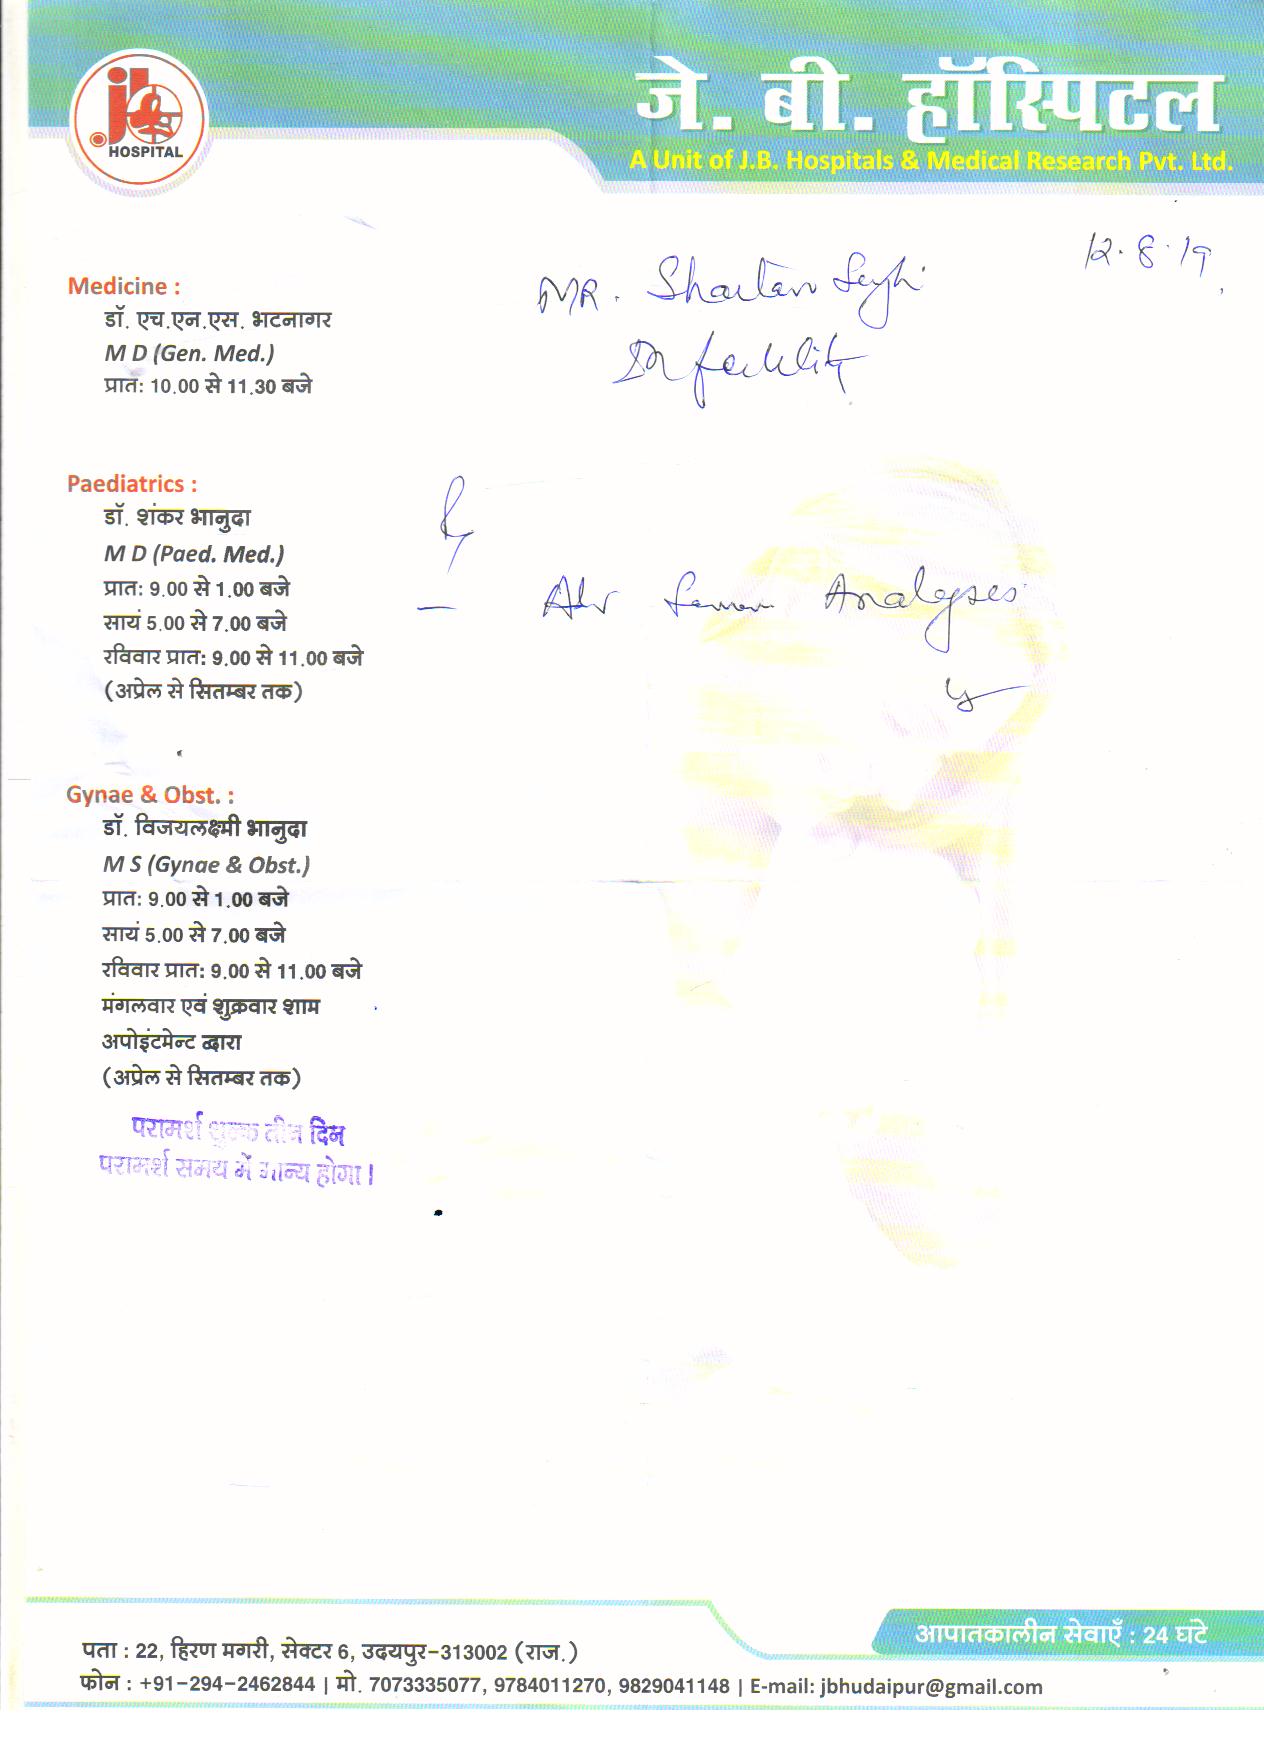 jb
HOSPITAL
जे. बी. हॉस्पिटल
A Unit of J.B. Hospitals & Medical Research Pvt. Ltd.
12.8.19
MR. Shaitan Singh
Infertility
Medicine :
डॉ. एच.एन.एस. भटनागर
M D (Gen. Med.)
प्रात: 10.00 से 11.30 बजे
Paediatrics :
डॉ. शंकर भानुदा
M D (Paed. Med.)
प्रात: 9.00 से 1.00 बजे
सायं 5.00 से 7.00 बजे
रविवार प्रात: 9.00 से 11.00 बजे
(अप्रेल से सितम्बर तक)
— Adv Semen Analyses
Gynae & Obst. :
डॉ. विजयलक्ष्मी भानुदा
M S (Gynae & Obst.)
प्रात: 9.00 से 1.00 बजे
सायं 5.00 से 7.00 बजे
रविवार प्रात: 9.00 से 11.00 बजे
मंगलवार एवं शुक्रवार शाम
अपोइंटमेन्ट द्वारा
(अप्रेल से सितम्बर तक)
परामर्श शुल्क तीन दिन
परामर्श समय में मान्य होगा।
आपातकालीन सेवाएँ : 24 घंटे
पता : 22, हिरण मगरी, सेक्टर 6, उदयपुर-313002 (राज.)
फोन : +91-294-2462844 | मो. 7073335077, 9784011270, 9829041148 | E-mail: jbhudaipur@gmail.com